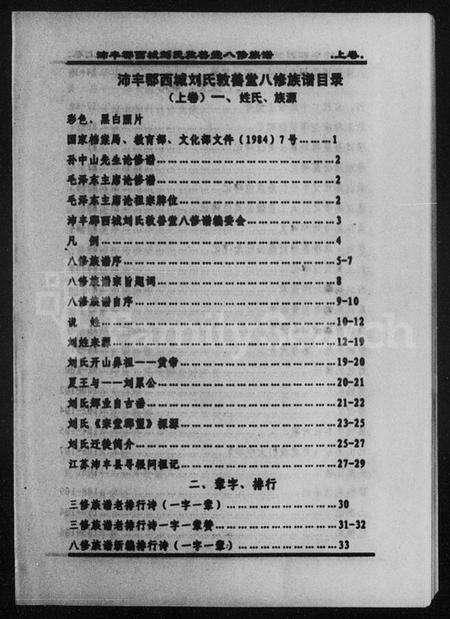 沛丰郡西城刘氏敦善堂八修族谱 .上卷.
沛丰郡西城刘氏敦善堂八修族谱目录
（上卷）一、姓氏、族源
彩色、黑白照片
国家档案局、教育部、文化部文件（1984）7号………1
孙中山先生论修谱……………………………2
毛泽东主席论修谱……………………………2
毛泽东主席论祖宗牌位………………………2
沛丰郡西城刘氏敦善堂八修谱编委会………………3
凡 例……………………………………4
八修族谱序………………………………5-7
八修族谱宗旨题词……………………………8
八修族谱自序………………………………9-10
说 姓……………………………………10-12
刘姓来源…………………………………12-19
刘氏开山鼻祖——黄帝………………………19-20
夏王与——刘累公……………………………20-21
刘氏郷业自古香……………………………21-22
刘氏《宗堂郡望》探源………………………23-25
刘氏迁徙简介………………………………25-27
江苏沛丰县寻根问祖记………………………27-29
二、辈字、排行
三修族谱老排行诗（一字一辈）………………30
三修族谱老排行诗一字一辈赞………………31-32
八修族谱新编排行诗（一字一辈）………………33
FamilySearch